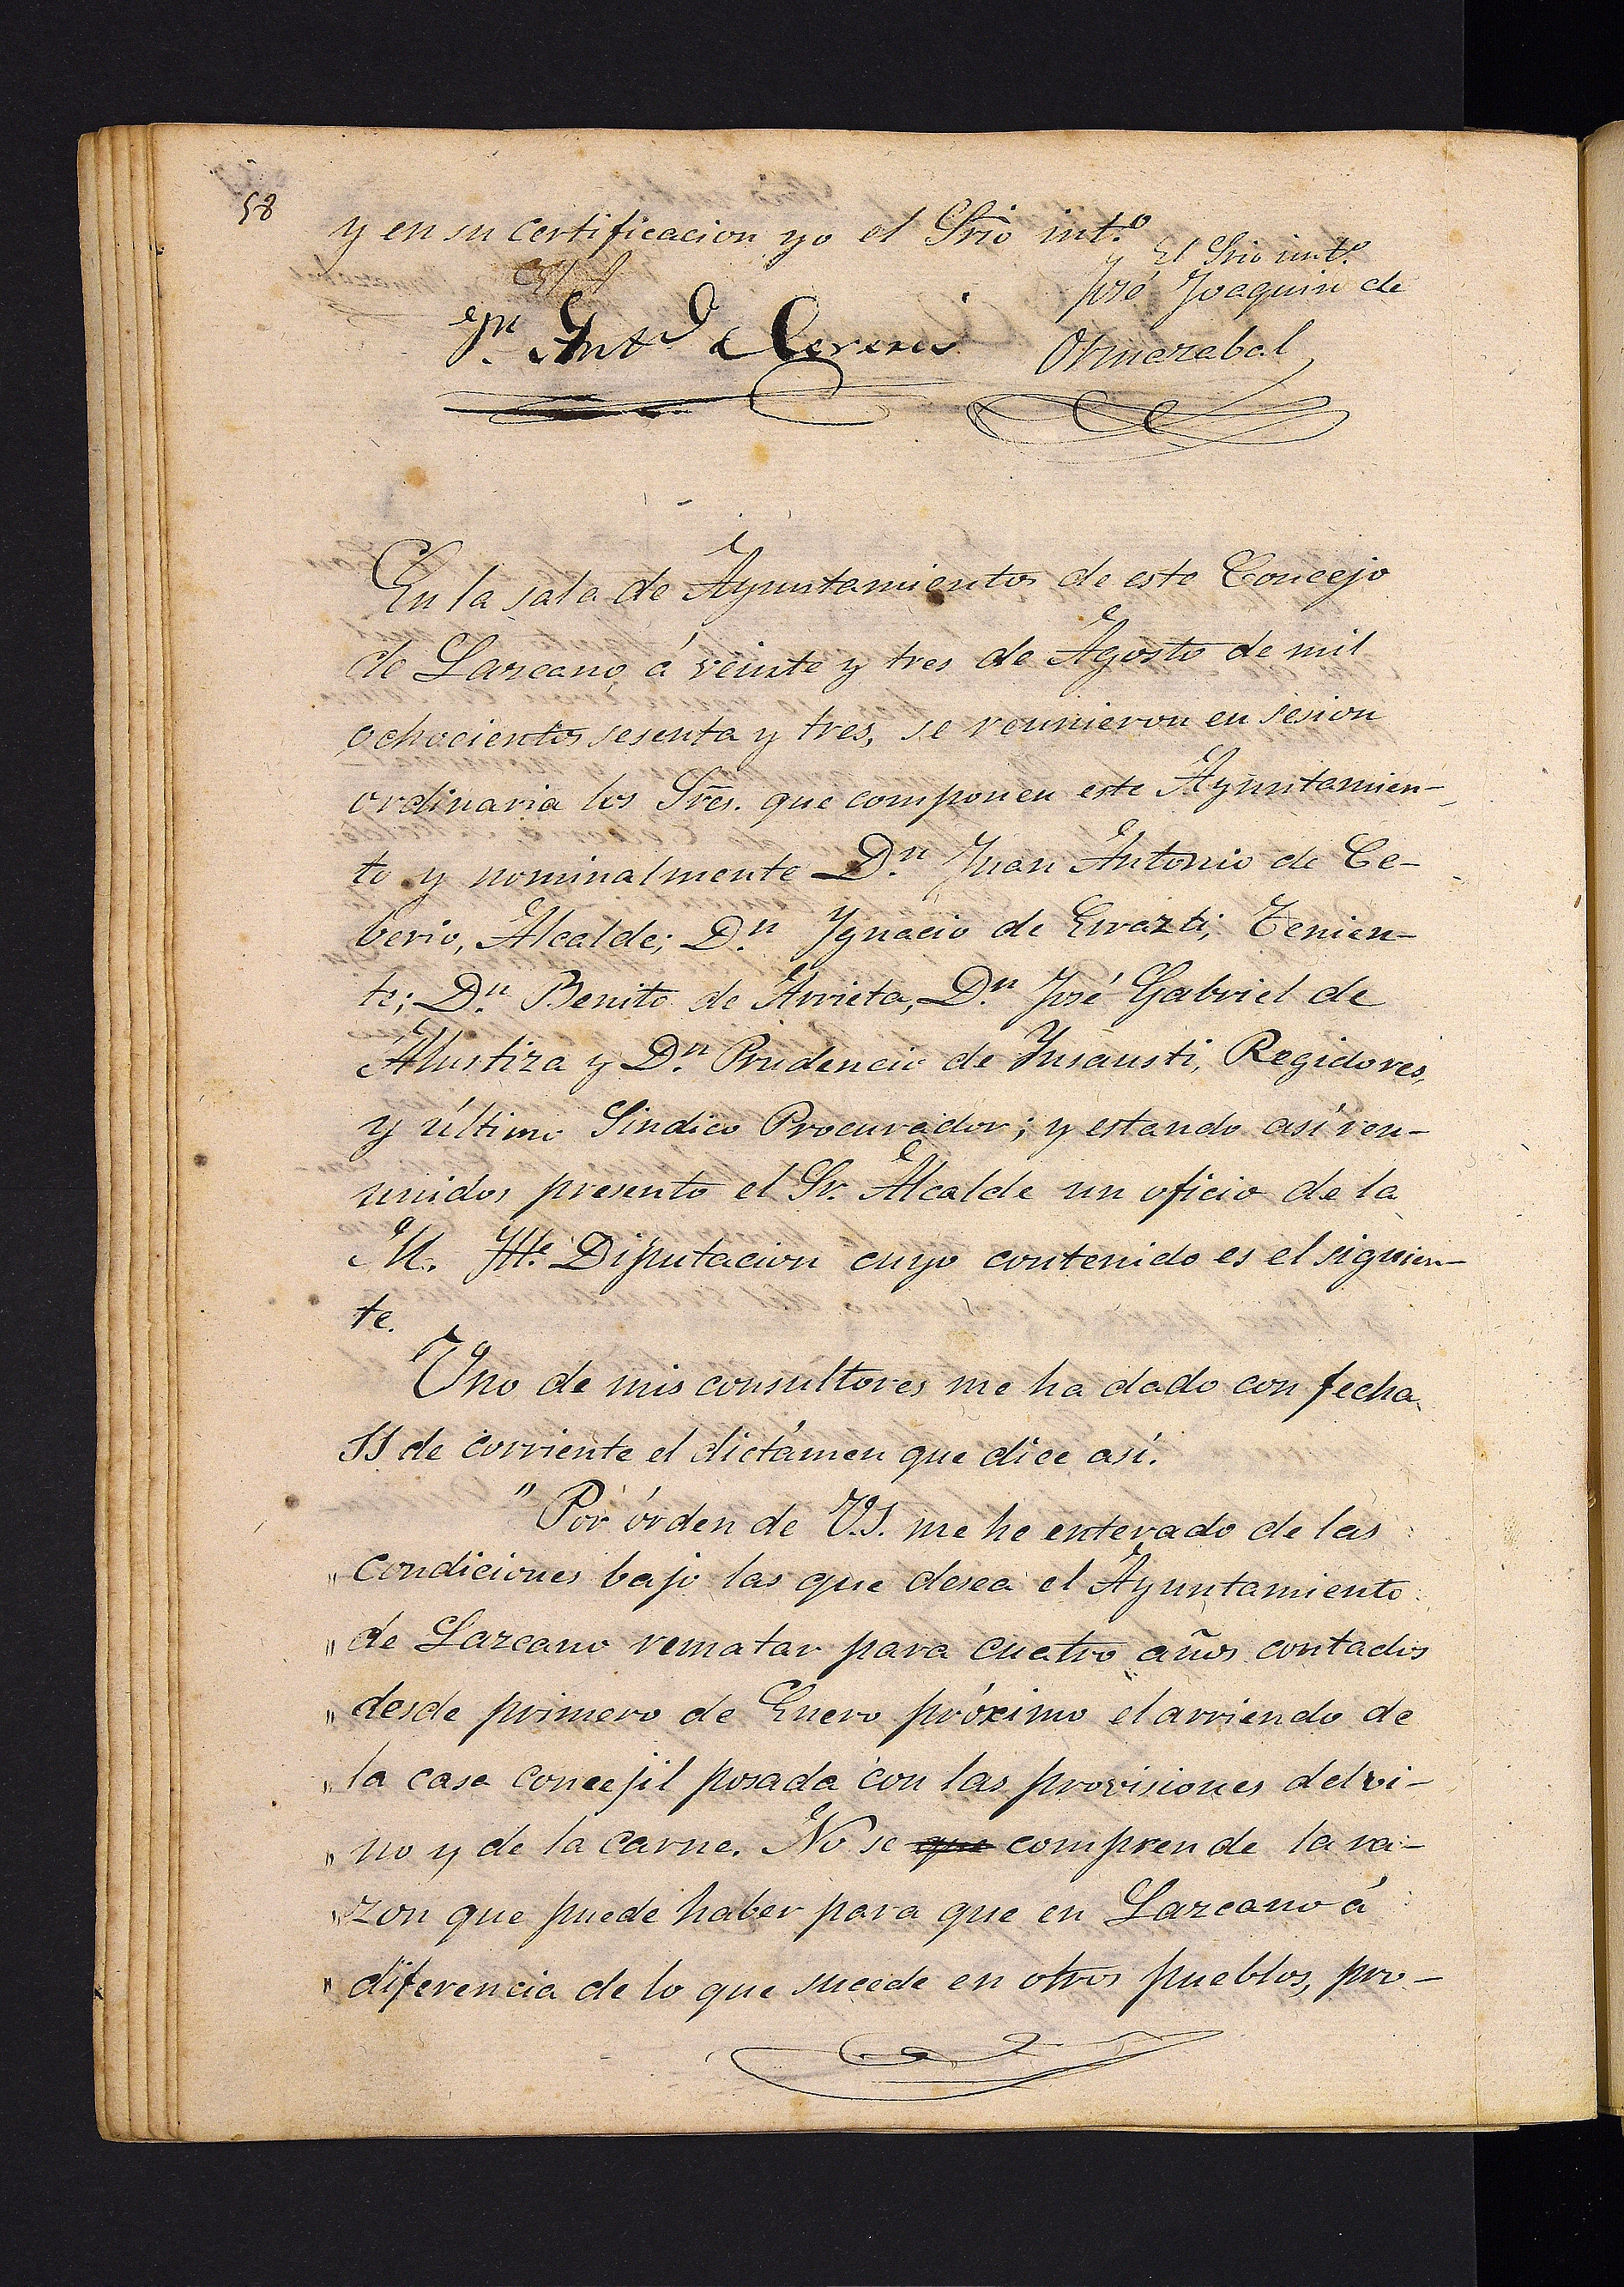 58
y en su certificacion yo el Srio int.º
Jn. Antº Ceverio
y El Srio int.º
José Joaquin de
Ormazabal
En la sala de Ayuntamientos de este Concejo
de Lazcano, á veinte y tres de Agosto de mil
ochocientos sesenta y tres, se reunieron en sesion
ordinaria los Sres. que componen este Ayuntamien-
to y nominalmente D.n Juan Antonio de Ce-
berio, Alcalde; D.n Ygnacio de Errazti, Tenien-
te; D.n Benito de Arrieta, D.n José Gabriel de
Alustiza y D.n Prudencio de Ynsausti, Regidores,
y último Sindico Procurador; y estando así reu-
unidos presento el Sr. Alcalde un oficio de la
M. Yll.e Diputacion cuyo contenido es el siguien-
te.
Uno de mis consultores me ha dado con fecha
11 de corriente el dictámen que dice así.
"Por órden de V.S. me he enterado de las
" condiciones bajo las que desea el Ayuntamiento
" de Lazcano rematar para cuatro años contados
" desde primero de Enero próximo el arriendo de
" la casa concejil posada con las provisiones del vi-
" no y de la carne. No se que comprende la ra-
" zon que puede haber para que en Lazcano á
" diferencia de lo que sucede en otros pueblos, pro-